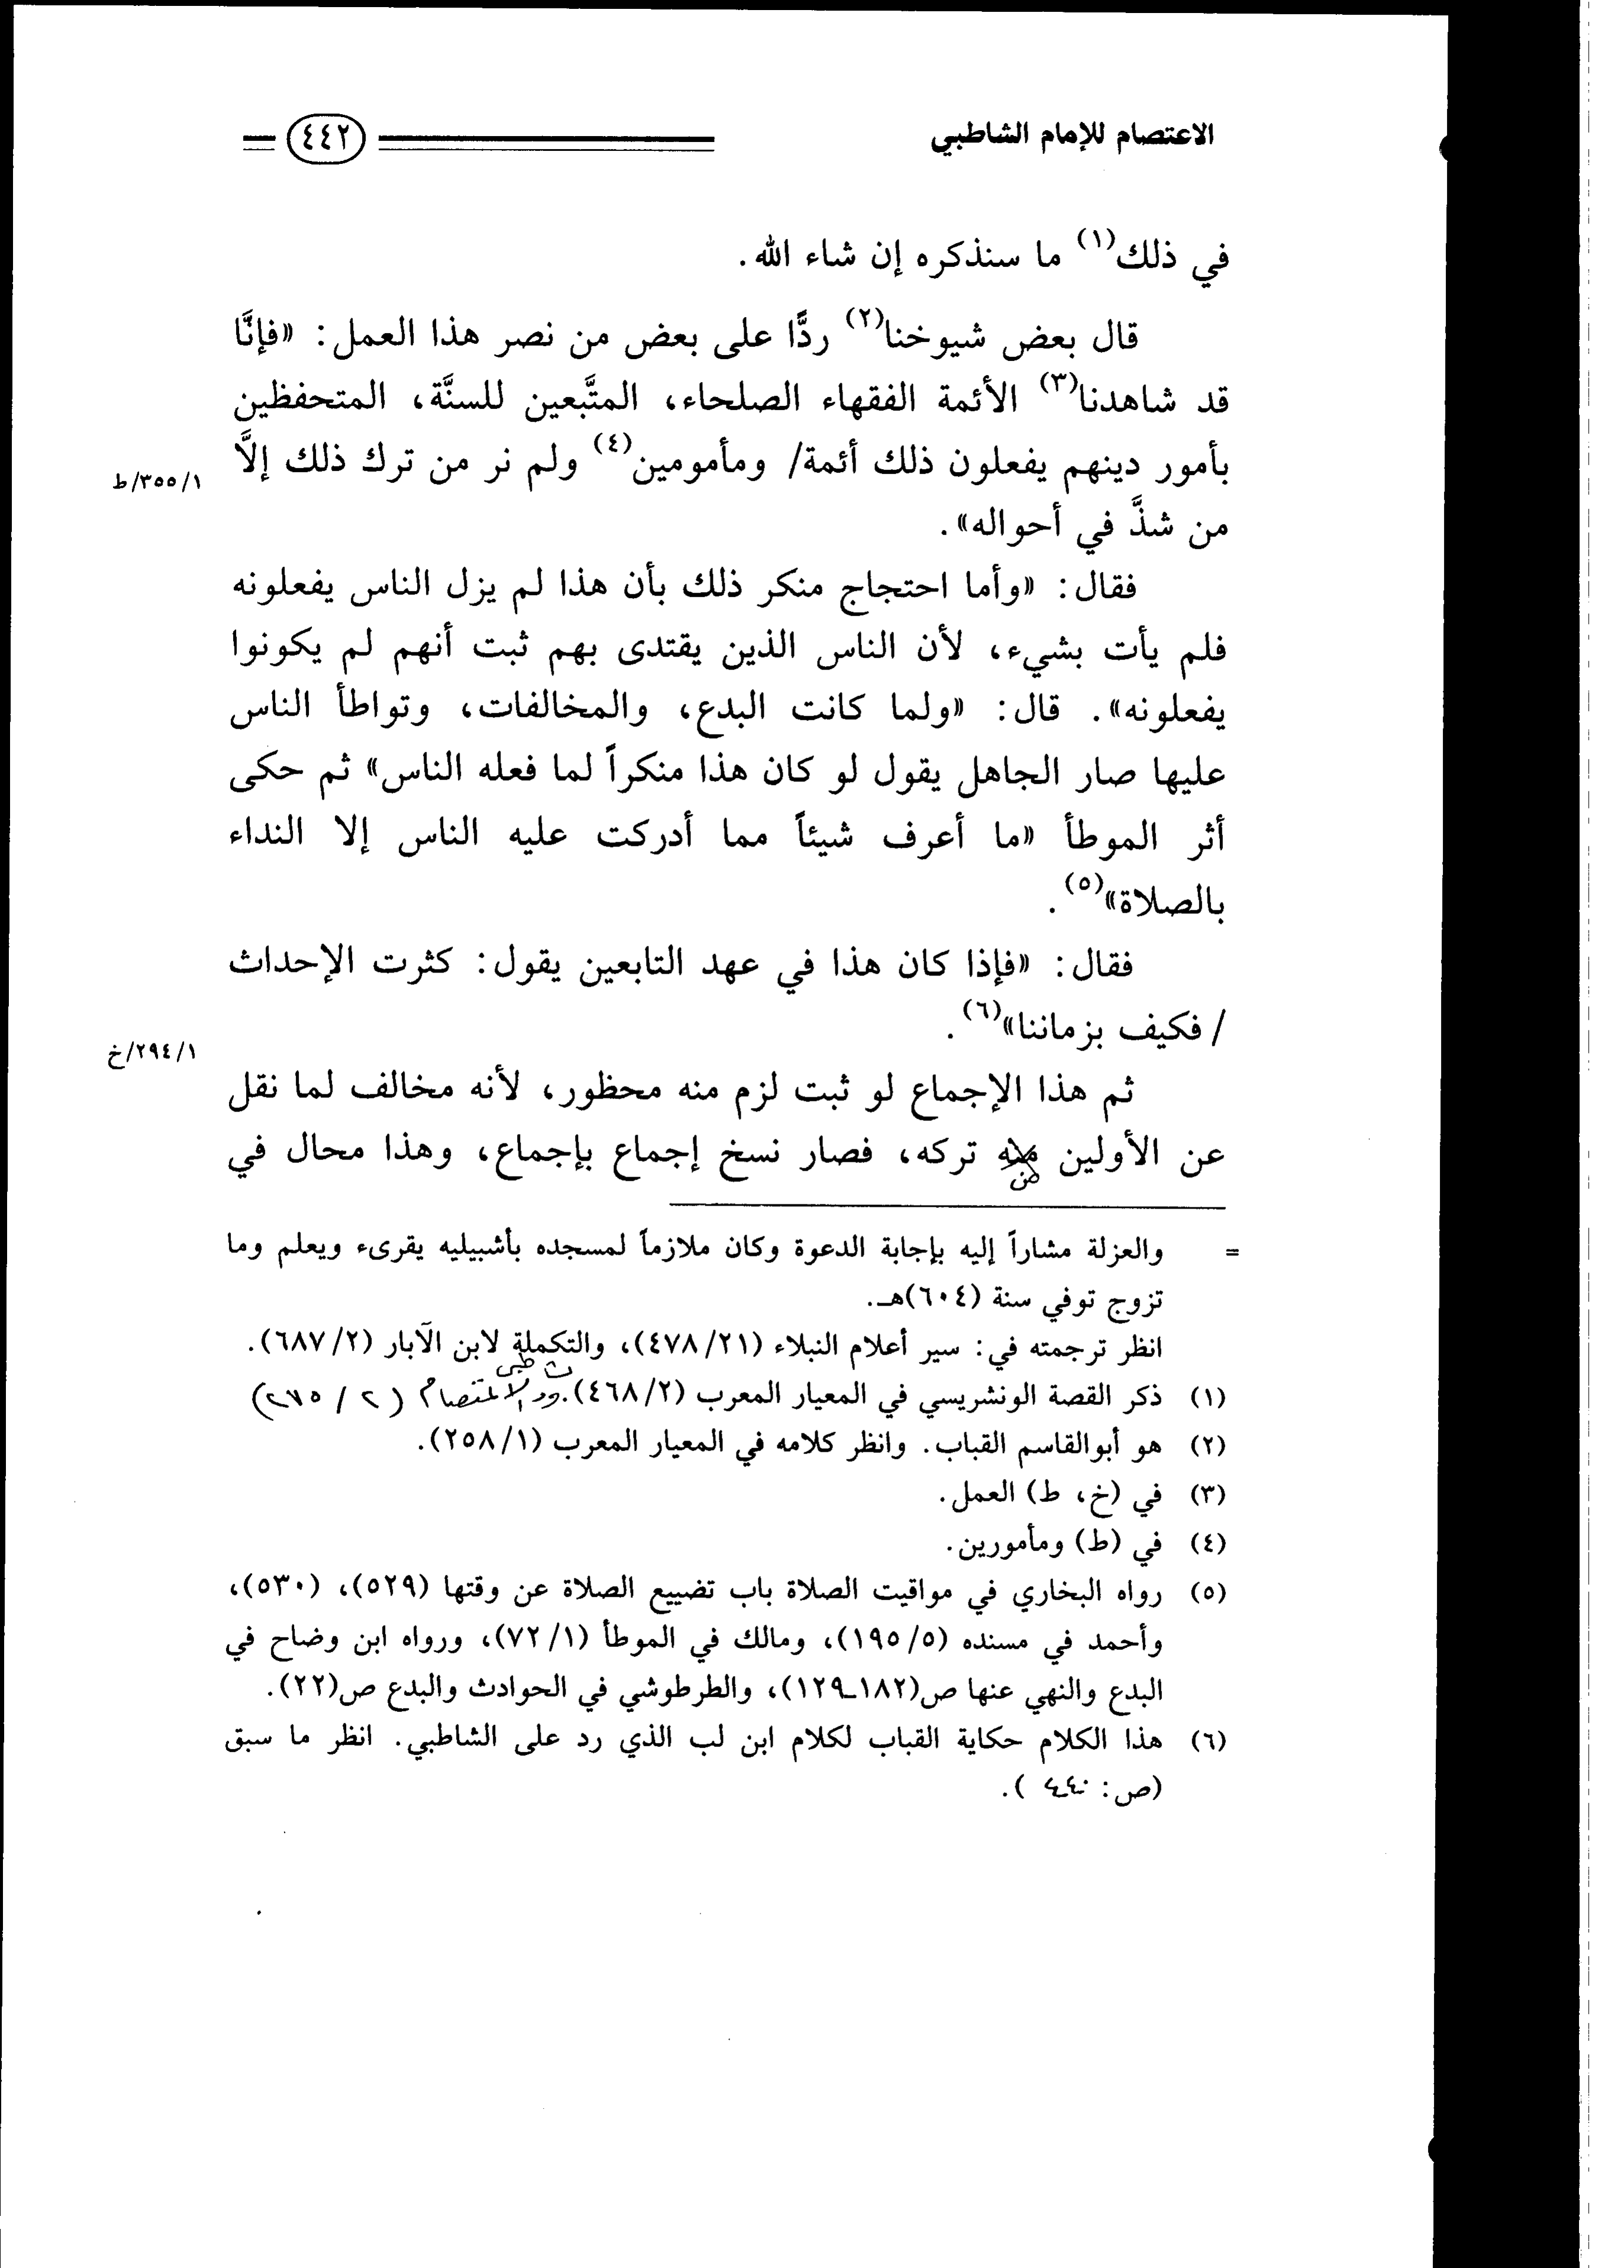 الاعتصام للإمام الشاطبي ٤٤٢
في ذلك(١) ما سنذكره إن شاء الله.
قال بعض شيوخنا(٢) ردًّا على بعض من نصر هذا العمل: «فإنَّا
قد شاهدنا(٣) الأئمة الفقهاء الصلحاء، المتَّبعين للسنَّة، المتحفظين
بأمور دينهم يفعلون ذلك أئمة/ ومأمومين(٤) ولم نر من ترك ذلك إلاَّ
٣٥٥/١/ط
من شذَّ في أحواله».
فقال: «وأما احتجاج منكر ذلك بأن هذا لم يزل الناس يفعلونه
فلم يأت بشيء، لأن الناس الذين يقتدى بهم ثبت أنهم لم يكونوا
يفعلونه». قال: «ولما كانت البدع، والمخالفات، وتواطأ الناس
عليها صار الجاهل يقول لو كان هذا منكراً لما فعله الناس» ثم حكى
أثر الموطأ «ما أعرف شيئاً مما أدركت عليه الناس إلا النداء
بالصلاة»(٥).
فقال: «فإذا كان هذا في عهد التابعين يقول: كثرت الإحداث
/ فكيف بزماننا»(٦).
٢٩٤/١/خ
ثم هذا الإجماع لو ثبت لزم منه محظور، لأنه مخالف لما نقل
عن الأولين من تركه، فصار نسخ إجماع بإجماع، وهذا محال في
= والعزلة مشاراً إليه بإجابة الدعوة وكان ملازماً لمسجده بأشبيليه يقرىء ويعلم وما
تزوج توفي سنة (٦٠٤)هـ.
انظر ترجمته في: سير أعلام النبلاء (٤٧٨/٢١)، والتكملة لابن الآبار (٦٨٧/٢).
(١) ذكر القصة الونشريسي في المعيار المعرب (٤٦٨/٢). الاعتصام (٢ / ٢٧٥)
(٢) هو أبوالقاسم القباب. وانظر كلامه في المعيار المعرب (٢٥٨/١).
(٣) في (خ، ط) العمل.
(٤) في (ط) ومأمورين.
(٥) رواه البخاري في مواقيت الصلاة باب تضييع الصلاة عن وقتها (٥٢٩)، (٥٣٠)،
وأحمد في مسنده (١٩٥/٥)، ومالك في الموطأ (٧٢/١)، ورواه ابن وضاح في
البدع والنهي عنها ص(١٨٢ـ١٢٩)، والطرطوشي في الحوادث والبدع ص(٢٢).
(٦) هذا الكلام حكاية القباب لكلام ابن لب الذي رد على الشاطبي. انظر ما سبق
(ص: ٤٤٠).